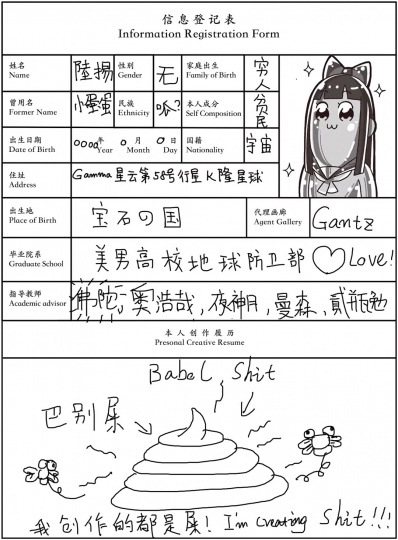 信息登记表
Information Registration Form
姓名 Name 陸揚 性别 Gender 无 家庭出生 Family of Birth 穷人
曾用名 Former Name 小蛋蛋 民族 Ethnicity 呱? 本人成分 Self Composition 贫民
出生日期 Date of Birth 0000年 Year 0月 Month 0日 Day 国籍 Nationality 宇宙
住址 Address Gamma星云第58号行星K隆星球
出生地 Place of Birth 宝石の国 代理画廊 Agent Gallery Gantz
毕业院系 Graduate School 美男高校地球防卫部 Love!
指导教师 Academic advisor 佛陀, 奥浩哉, 夜神月, 曼森, 贰瓶勉
本人创作履历
Presonal Creative Resume
Babel Shit
巴别屎
我创作的都是屎! I'm creating Shit!!!